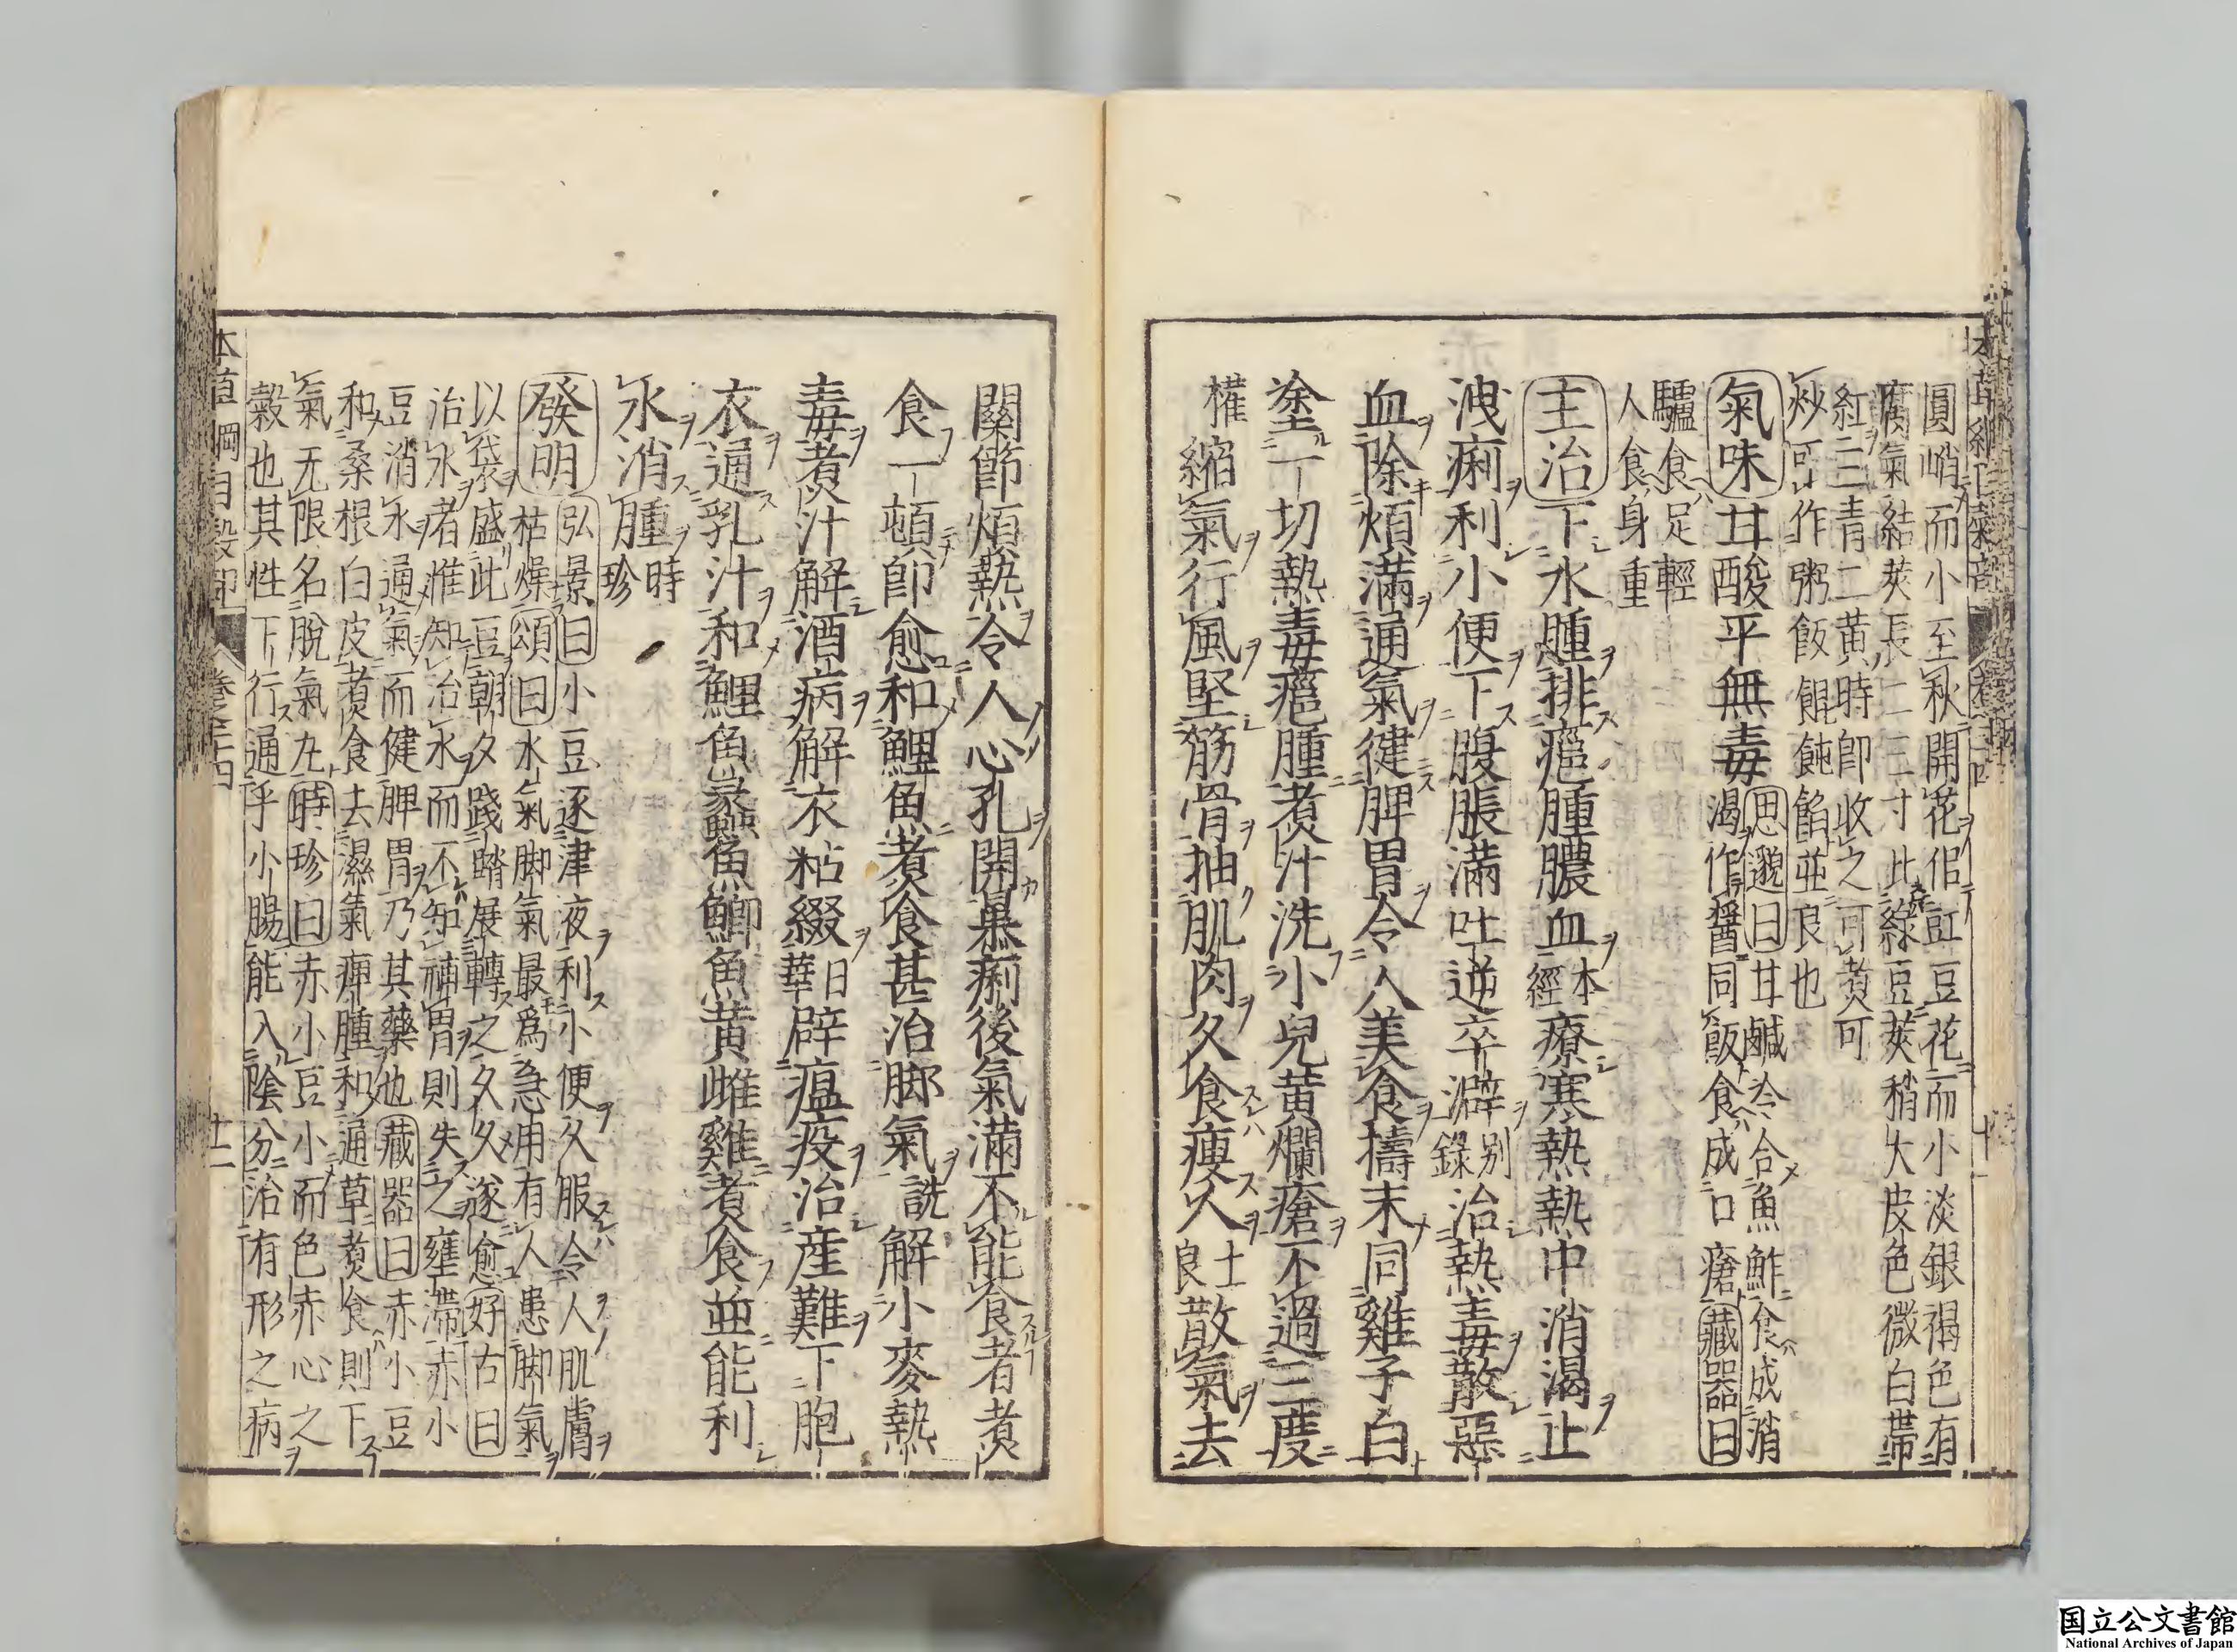 圓峭而小至秋開花佀豇豆花而小淡銀褐色有
腐氣結莢長二三寸此綠豆莢稍大皮色微白帶
紅三青二黃時卽收之可煑可
炒可作粥飯餛飩餡並良也
氣味甘酸平無毒思邈曰甘鹹冷合魚鮓食成消
渴作醬同飯食成口瘡藏器曰
驢食足輕
人食身重
主治下水腫排癰腫膿血本經療寒熱熱中消渴止
洩痢利小便下腹脹滿吐逆卒澼别錄治熱毒散惡
血除煩滿通氣健脾胃令人美食擣末同雞子白
塗一切熱毒癰腫煑汁洗小兒黃爛瘡不過三度
權縮氣行風堅筋骨抽肌肉久食瘦人士良散氣去
關節煩熱令人心孔開暴痢後氣滿不能食者煑
食一頓卽愈和鯉魚煑食甚治脚氣詵解小麥熱
毒煑汁解酒病解衣粘綴日華辟瘟疫治産難下胞
衣通乳汁和鯉魚蠡魚鯽魚黃雌雞煑食並能利
水消腫時珍
發明弘景曰小豆逐津液利小便久服令人肌膚
枯燥頌曰水氣脚氣最爲急用有人患脚氣
以袋盛此豆朝夕踐踏展轉之久久遂愈好古曰
治水者惟知治水而不知補胃則失之壅滯赤小
豆消水通氣而健脾胃乃其藥也藏器曰赤小豆
和桑根白皮煑食去濕氣痺腫和通草煑食則下
氣无限名脫氣丸時珍曰赤小豆小而色赤心之
穀也其性下行通乎小腸能入陰分治有形之病
本草綱目穀部 卷二十四 十二
国立公文書館
National Archives of Japan